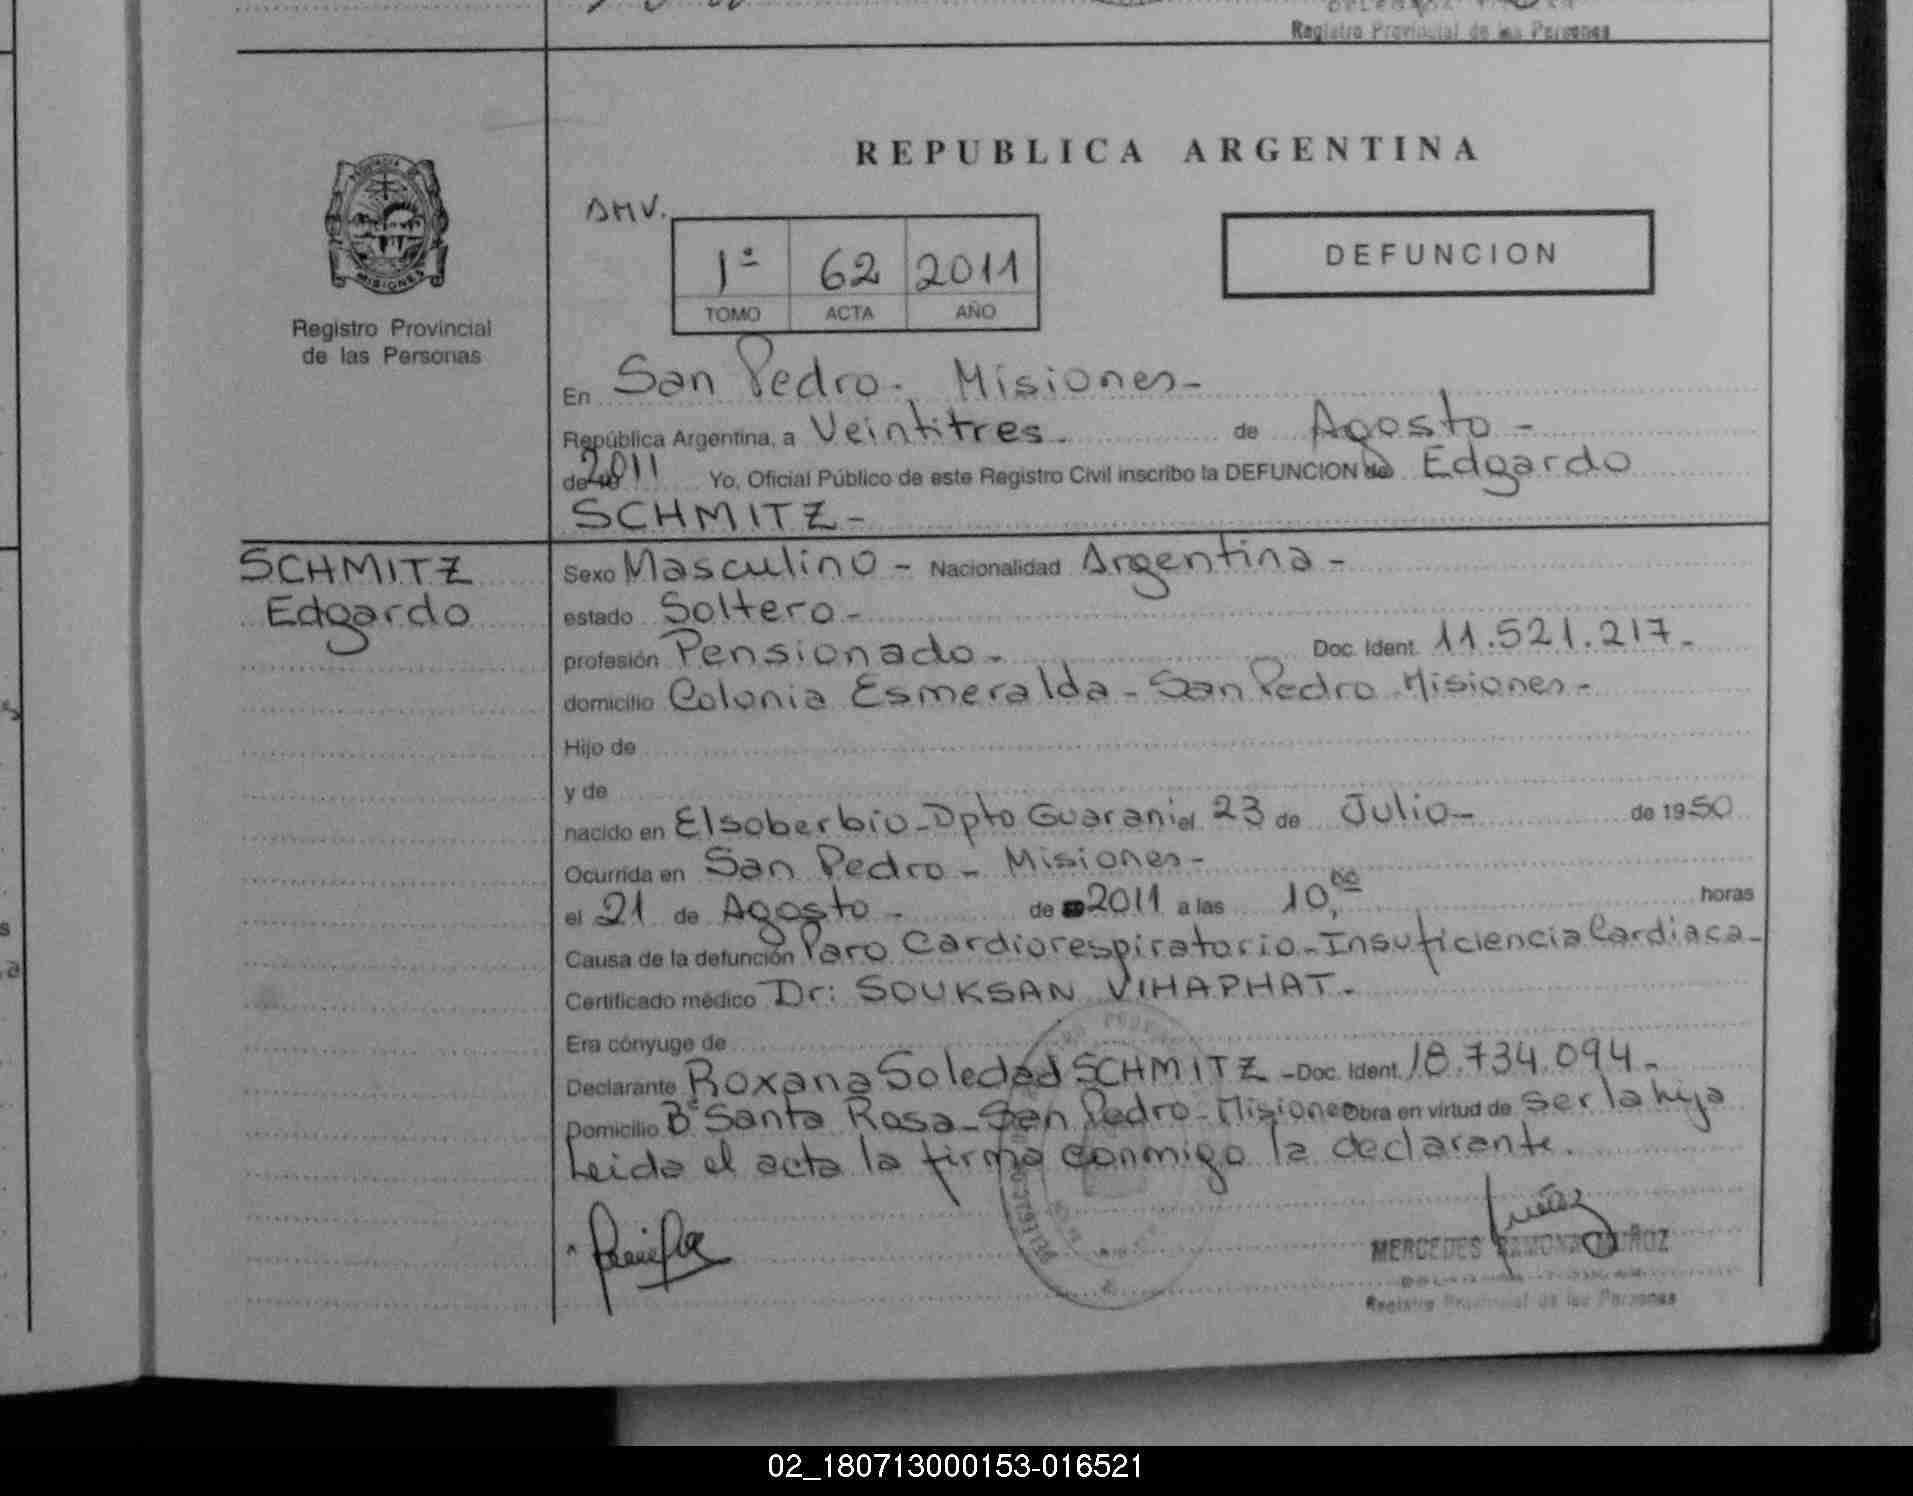 Registro Provincial de las Personas
REPUBLICA ARGENTINA
PROVINCIA DE
MISIONES
Registro Provincial
de las Personas
AMV.
1º 62 2011
TOMO ACTA AÑO
DEFUNCION
En San Pedro - Misiones -
República Argentina, a Veintitres - de Agosto -
de 2011 Yo, Oficial Público de este Registro Civil inscribo la DEFUNCION de Edgardo
SCHMITZ -
SCHMITZ
Edgardo
Sexo Masculino - Nacionalidad Argentina -
estado Soltero -
profesión Pensionado - Doc. Ident. 11.521.217 -
domicilio Colonia Esmeralda - San Pedro Misiones -
Hijo de
y de
nacido en Elsoberbio - Dpto Guarani el 23 de Julio - de 1950
Ocurrida en San Pedro - Misiones -
el 21 de Agosto - de 2011 a las 10,00 horas
Causa de la defunción Paro Cardiorespiratorio - Insuficiencia Cardiaca -
Certificado médico Dr: SOUKSAN VIHAPHAT -
Era cónyuge de
Declarante Roxana Soledad SCHMITZ - Doc. Ident. 18.734.094 -
Domicilio Bº Santa Rosa - San Pedro - Misiones Obra en virtud de ser la hija
Leida el acta la firma conmigo la declarante.
MERCEDES RAMONA MUÑOZ
Registro Provincial de las Personas
02_180713000153-016521